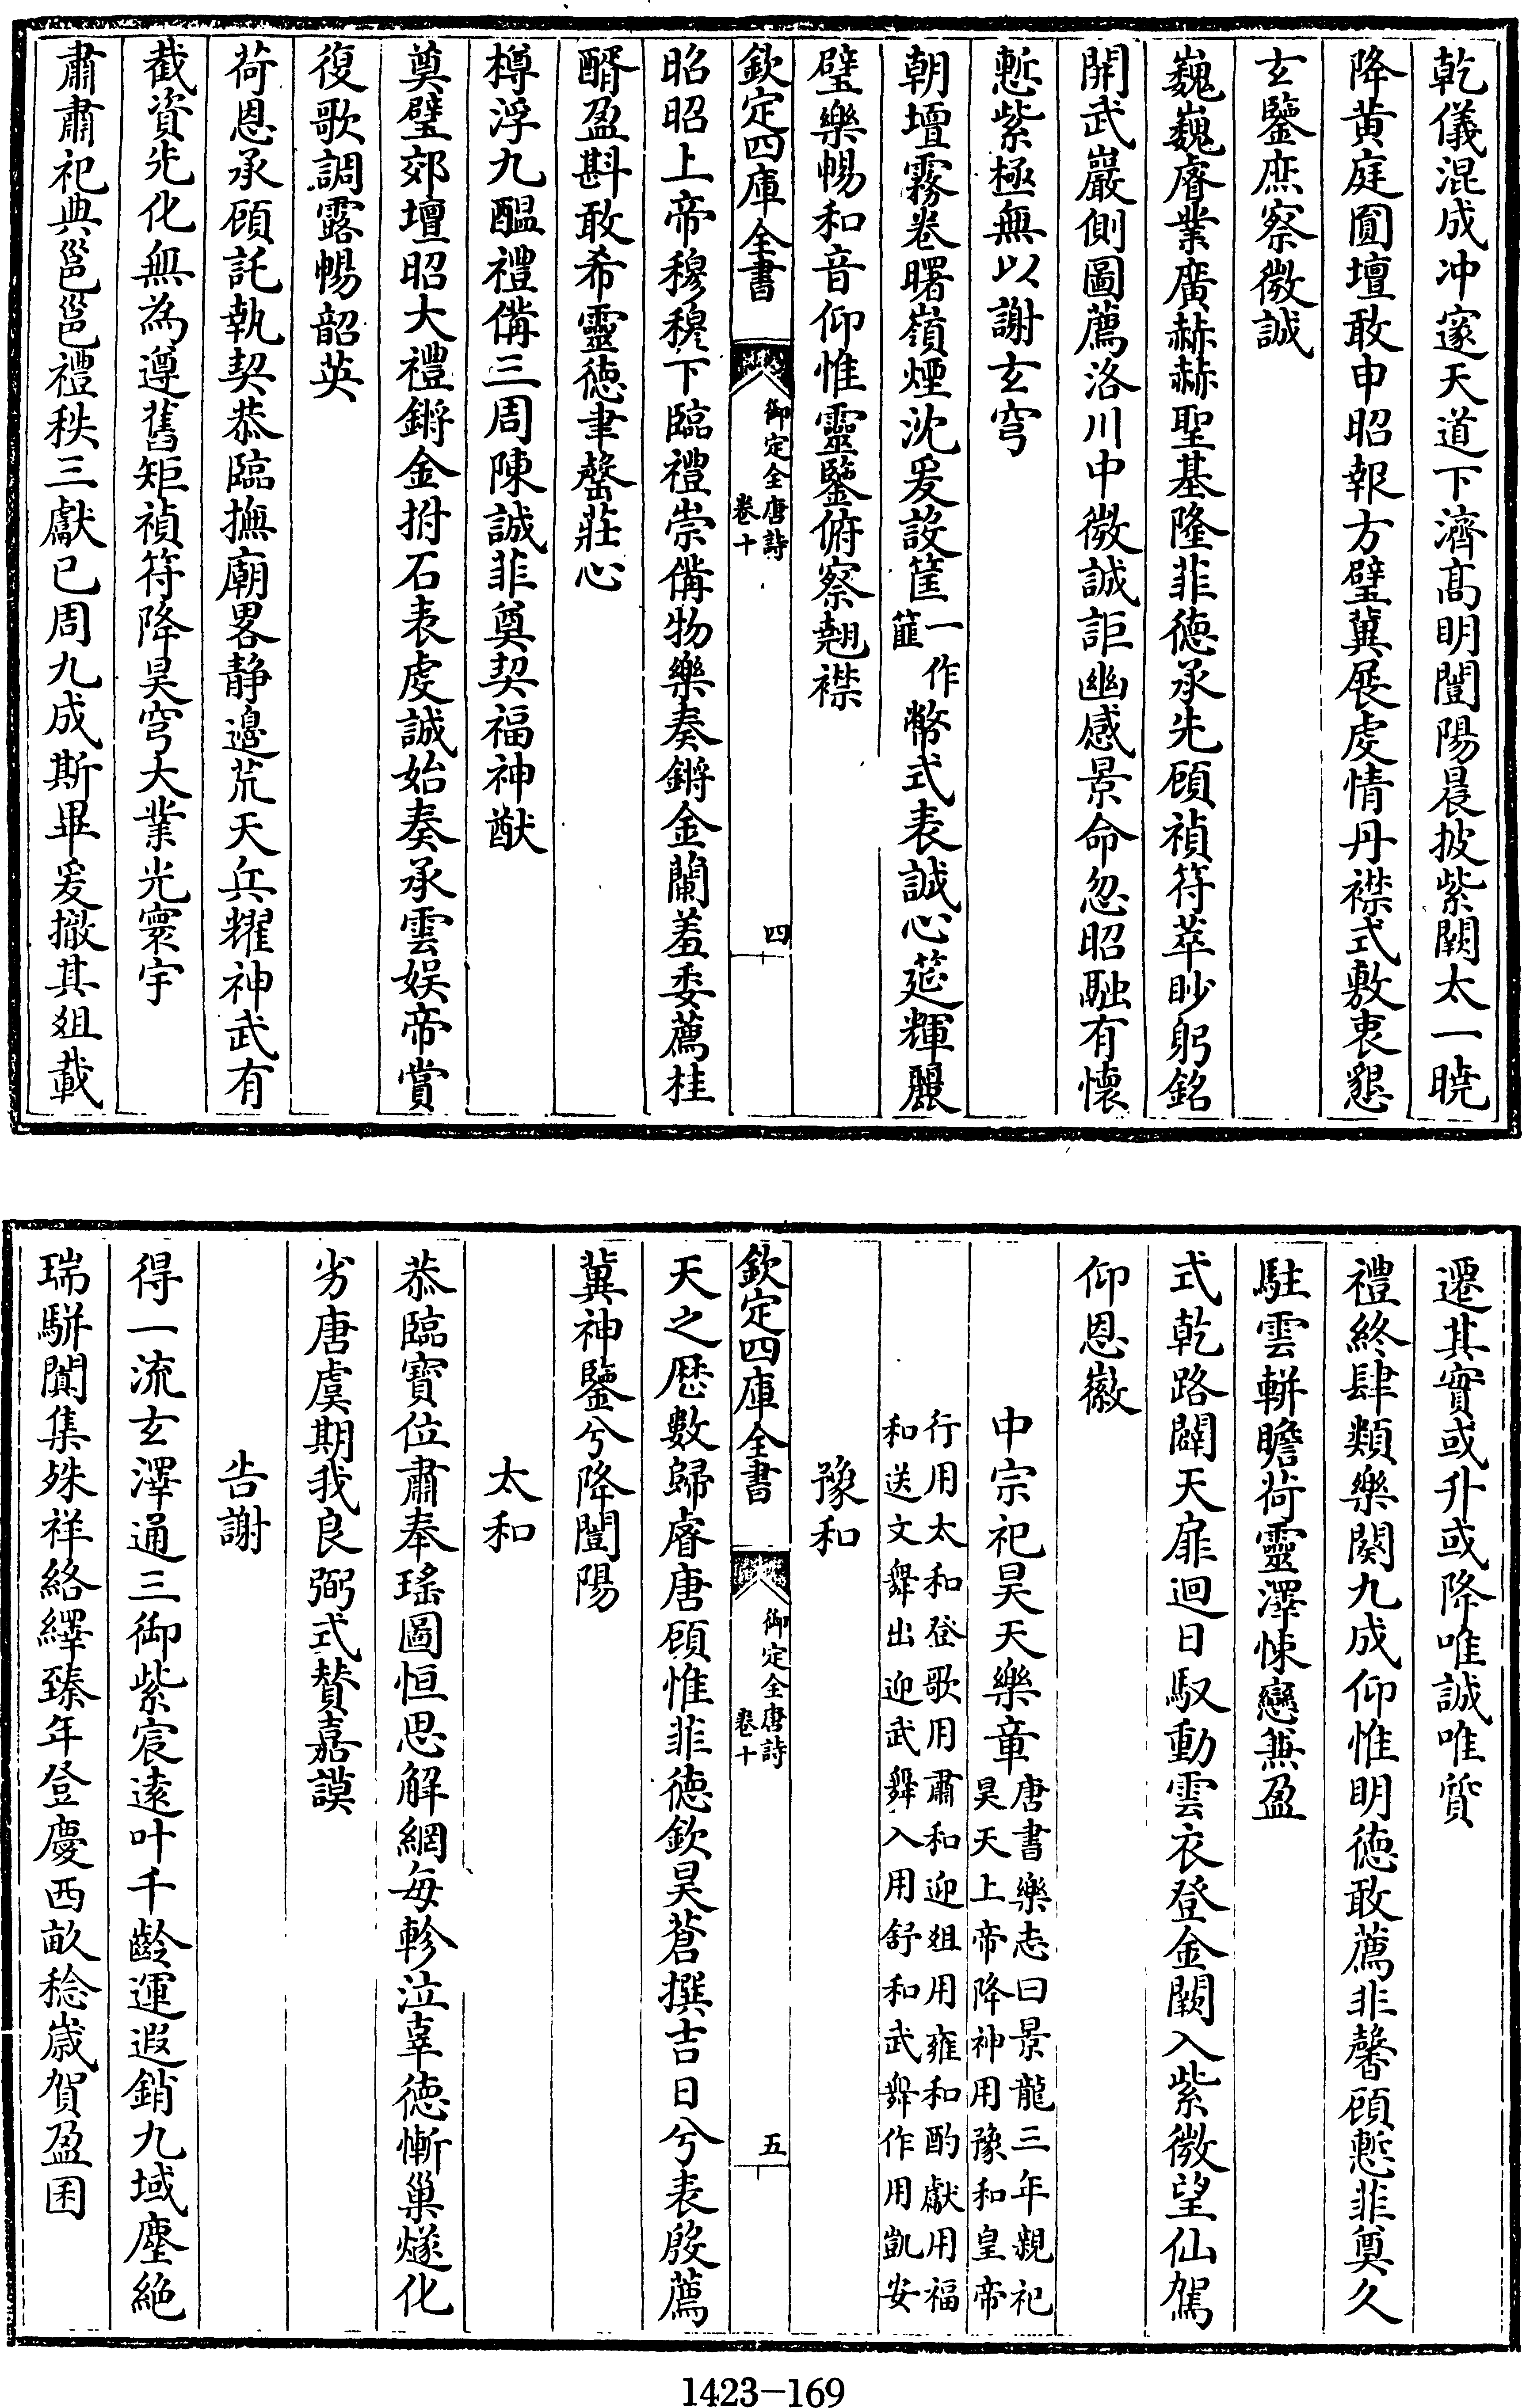 乾儀混成冲邃天道下濟髙明闓陽晨披紫闕太一曉
降黄庭圜壇敢申昭報方璧冀展虔情丹襟式敷衷懇
玄鑒庶察微誠
巍巍睿業廣赫赫聖基隆菲德承先顧禎符萃眇躬銘
開武巖側圖薦洛川中微誠詎幽感景命忽昭融有懷
慙紫極無以謝玄穹
朝壇霧卷曙嶺煙沈爰設筐一作篚幣式表誠心筵輝麗
璧樂暢和音仰惟靈鑒俯察翹襟
欽定四庫全書
御定全唐詩
卷十
四
昭昭上帝穆穆下臨禮崇備物樂奏鏘金蘭羞委薦桂
醑盈斟敢希靈德聿罄莊心
樽浮九醖禮備三周陳誠菲奠契福神猷
奠璧郊壇昭大禮鏘金拊石表虔誠始奏承雲娱帝賞
復歌調露暢韶英
荷恩承顧託執契恭臨撫廟畧静邊荒天兵耀神武有
截資先化無為遵舊矩禎符降昊穹大業光寰宇
肅肅祀典邕邕禮秩三獻已周九成斯畢爰撤其俎載
遷其實或升或降唯誠唯質
禮終肆類樂闋九成仰惟明德敢薦非馨顧慙菲奠久
駐雲軿瞻荷靈澤悚戀兼盈
式乾路闢天扉迴日馭動雲衣登金闕入紫微望仙駕
仰恩徽
中宗祀昊天樂章唐書樂志曰景龍三年親祀
昊天上帝降神用豫和皇帝
行用太和登歌用肅和迎俎用雍和酌獻用福
和送文舞出迎武舞入用舒和武舞作用凱安
豫和
欽定四庫全書
御定全唐詩
卷十
五
天之厯數歸睿唐顧惟菲德欽昊蒼撰吉日兮表殷薦
冀神鑒兮降闓陽
太和
恭臨寶位肅奉瑤圖恒思解網每軫泣辜德慚巢燧化
劣唐虞期我良弼式賛嘉謨
告謝
得一流玄澤通三御紫宸逺叶千齡運遐銷九域塵絶
瑞駢闐集殊祥絡繹臻年登慶西畝稔嵗賀盈囷
1423-169